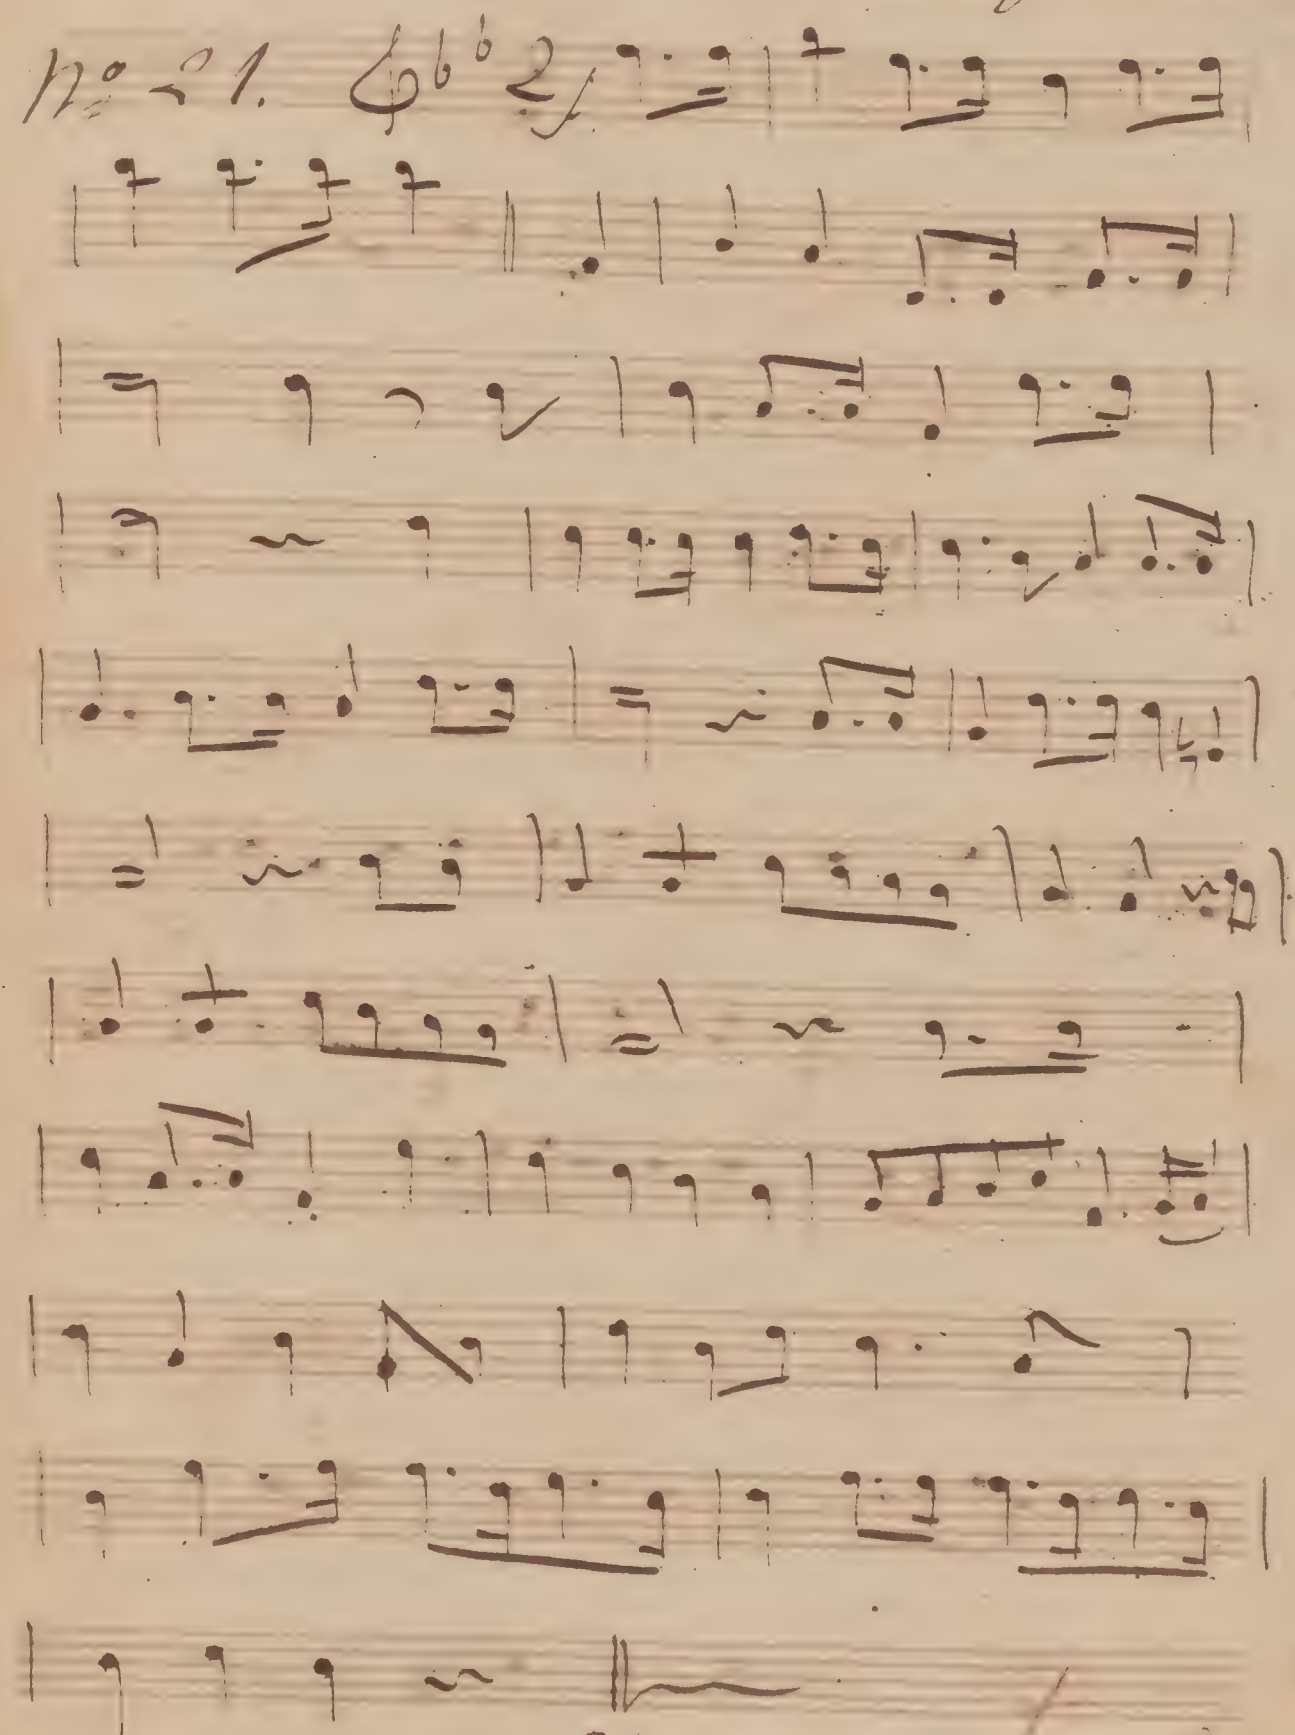 No 21.